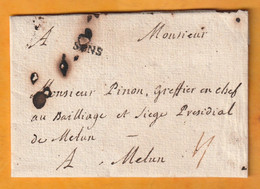 A Monsieur
SENS
Monsieur Pinon, Greffier en chef
au Bailliage et Siege Presidial
de Melun —
A Melun